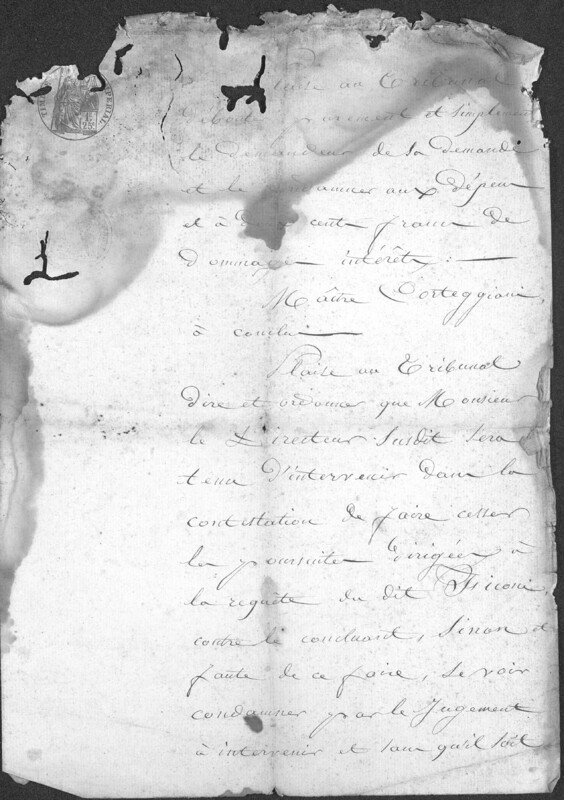 Plaise au Tribunal
purement et simplement
le demandeur de sa demande
et le condamner aux dépens
et à cent francs de
dommages intérêts :—
Maître Corteggiani,
à conclu—
Plaise au Tribunal
dire et ordonner que Monsieur
le Directeur susdit sera
tenu d'intervenir dans la
contestation de faire cesser
la poursuite dirigée à
la requête du dit
contre le concluant, sinon et
faute de ce faire, se voir
condamner par le Jugement
à intervenir et sans qu'il soit